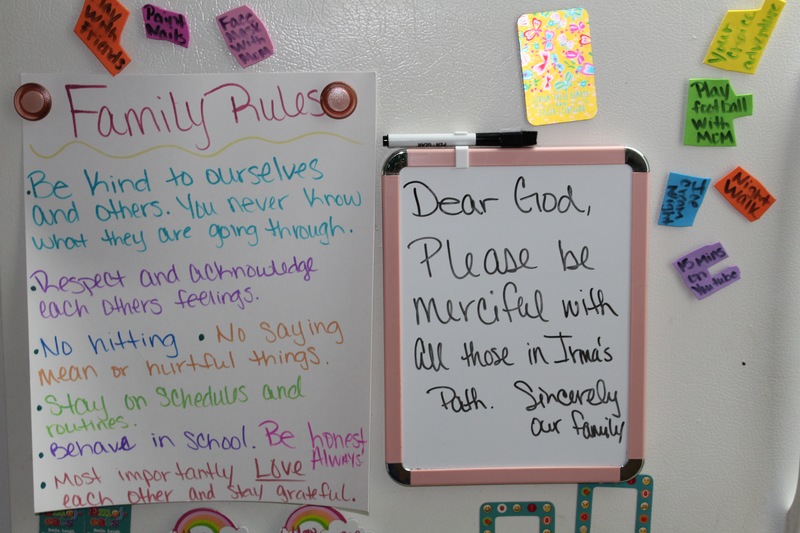 Play
with
friends
Paint
Nails
Face
Mask
With
Mom
Family Rules
• Be Kind to ourselves
and others. You never know
what they are going through.
• Respect and acknowledge
each others feelings.
• No hitting • No saying
mean or hurtful things.
• Stay on schedules and
routines.
• Behave in school. Be honest
Always!
• Most importantly LOVE
each other and stay grateful.
Dear God,
Please be
merciful with
all those in Irma's
Path. Sincerely
our family
adventure
Play
football
with
MOM
Ice
cream
Night
Night
Walk
15 mins
on
Youtube